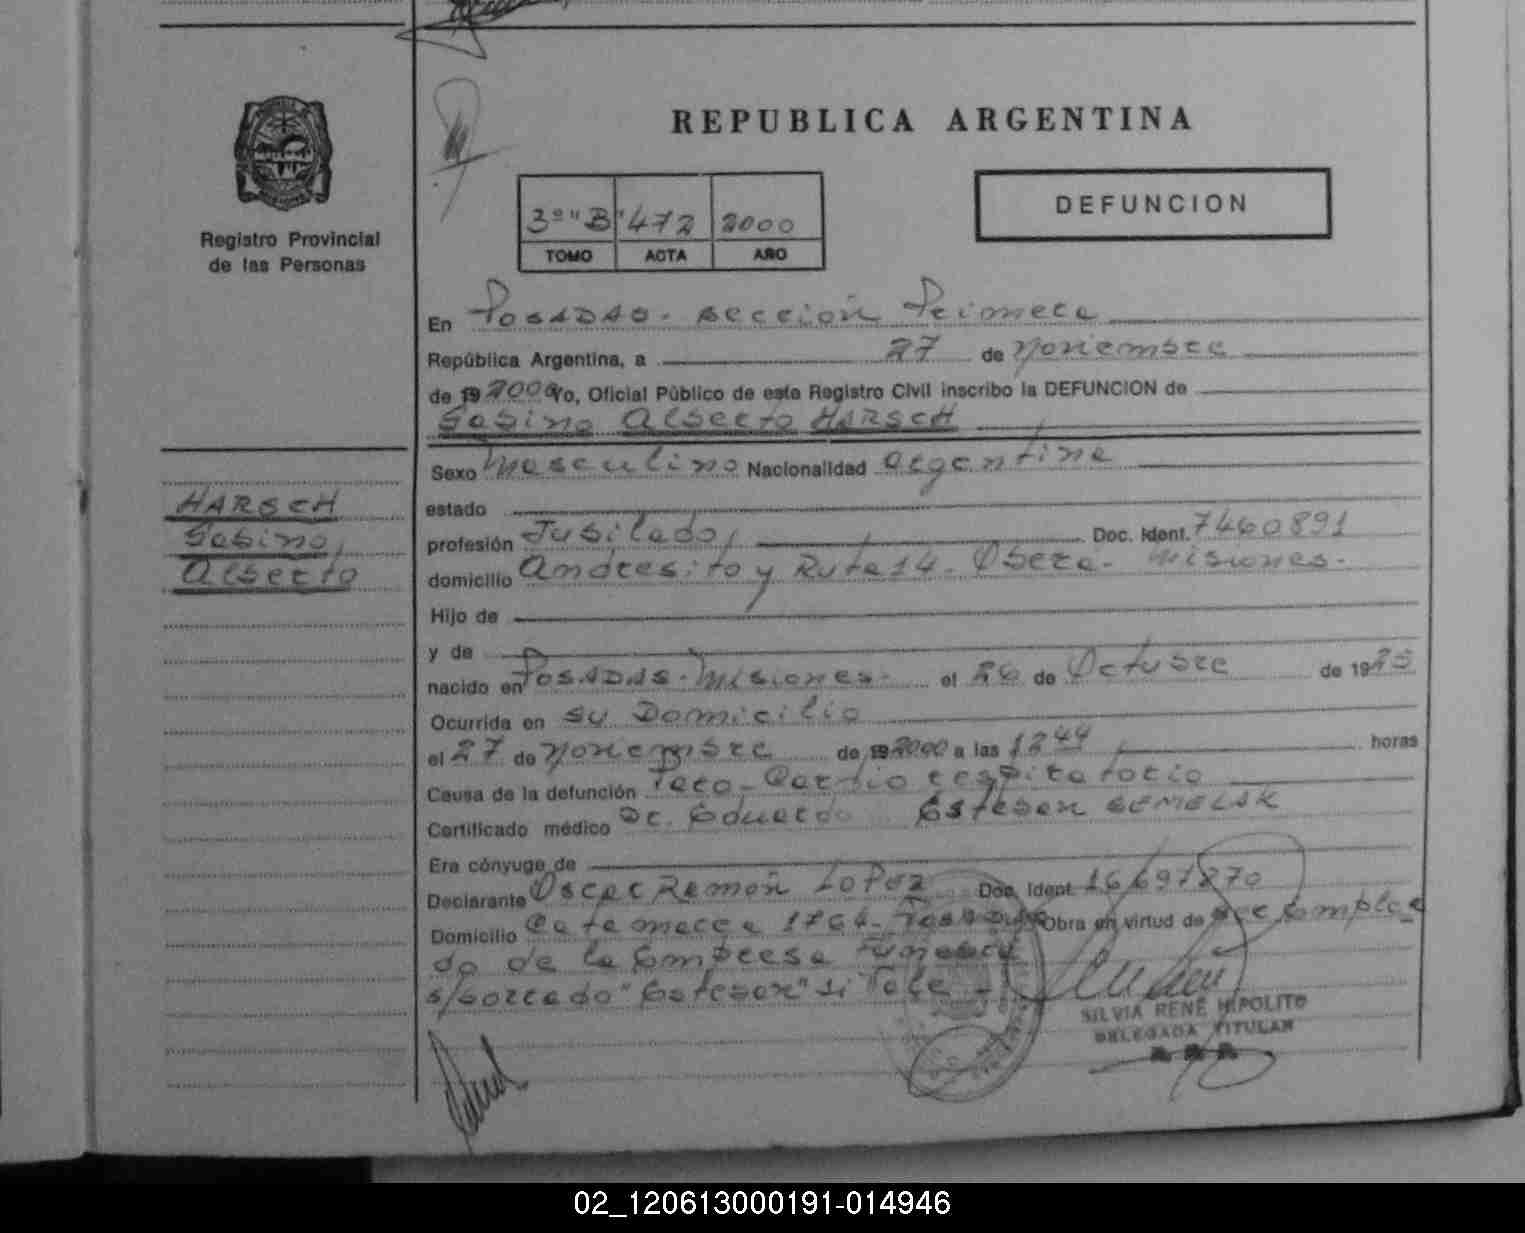 REPUBLICA ARGENTINA
Registro Provincial
de las Personas
3º "B" 472 2000
TOMO ACTA AÑO
DEFUNCION
En Posadas - sección Primera
República Argentina, a 27 de Noviembre
de 19 2000 Yo, Oficial Público de este Registro Civil inscribo la DEFUNCION de
Gabino Alberto HARSCH
HARSCH
Gabino,
Alberto
Sexo Masculino Nacionalidad Argentina
estado
profesión Jubilado, Doc. Ident. 7460891
domicilio Andresito y Ruta 14 - Oberá - Misiones.
Hijo de
y de
nacido en Posadas - Misiones - el 26 de Octubre de 19 25
Ocurrida en su Domicilio
el 27 de Noviembre de 19 2000 a las 12 44 horas
Causa de la defunción Paro - Cardio respiratorio
Certificado médico Dr. Eduardo Esteban SEMELAK
Era cónyuge de
Declarante Oscar Ramón Lopez Doc. Ident. 16697270
Domicilio Catamarca 1764 - Posadas Obra en virtud de ser Emplea
do de la Empresa Funebre
s/borrado "Esteban" si Vale -
SILVIA RENÉ HIPOLITO
DELEGADA TITULAR
02_120613000191-014946